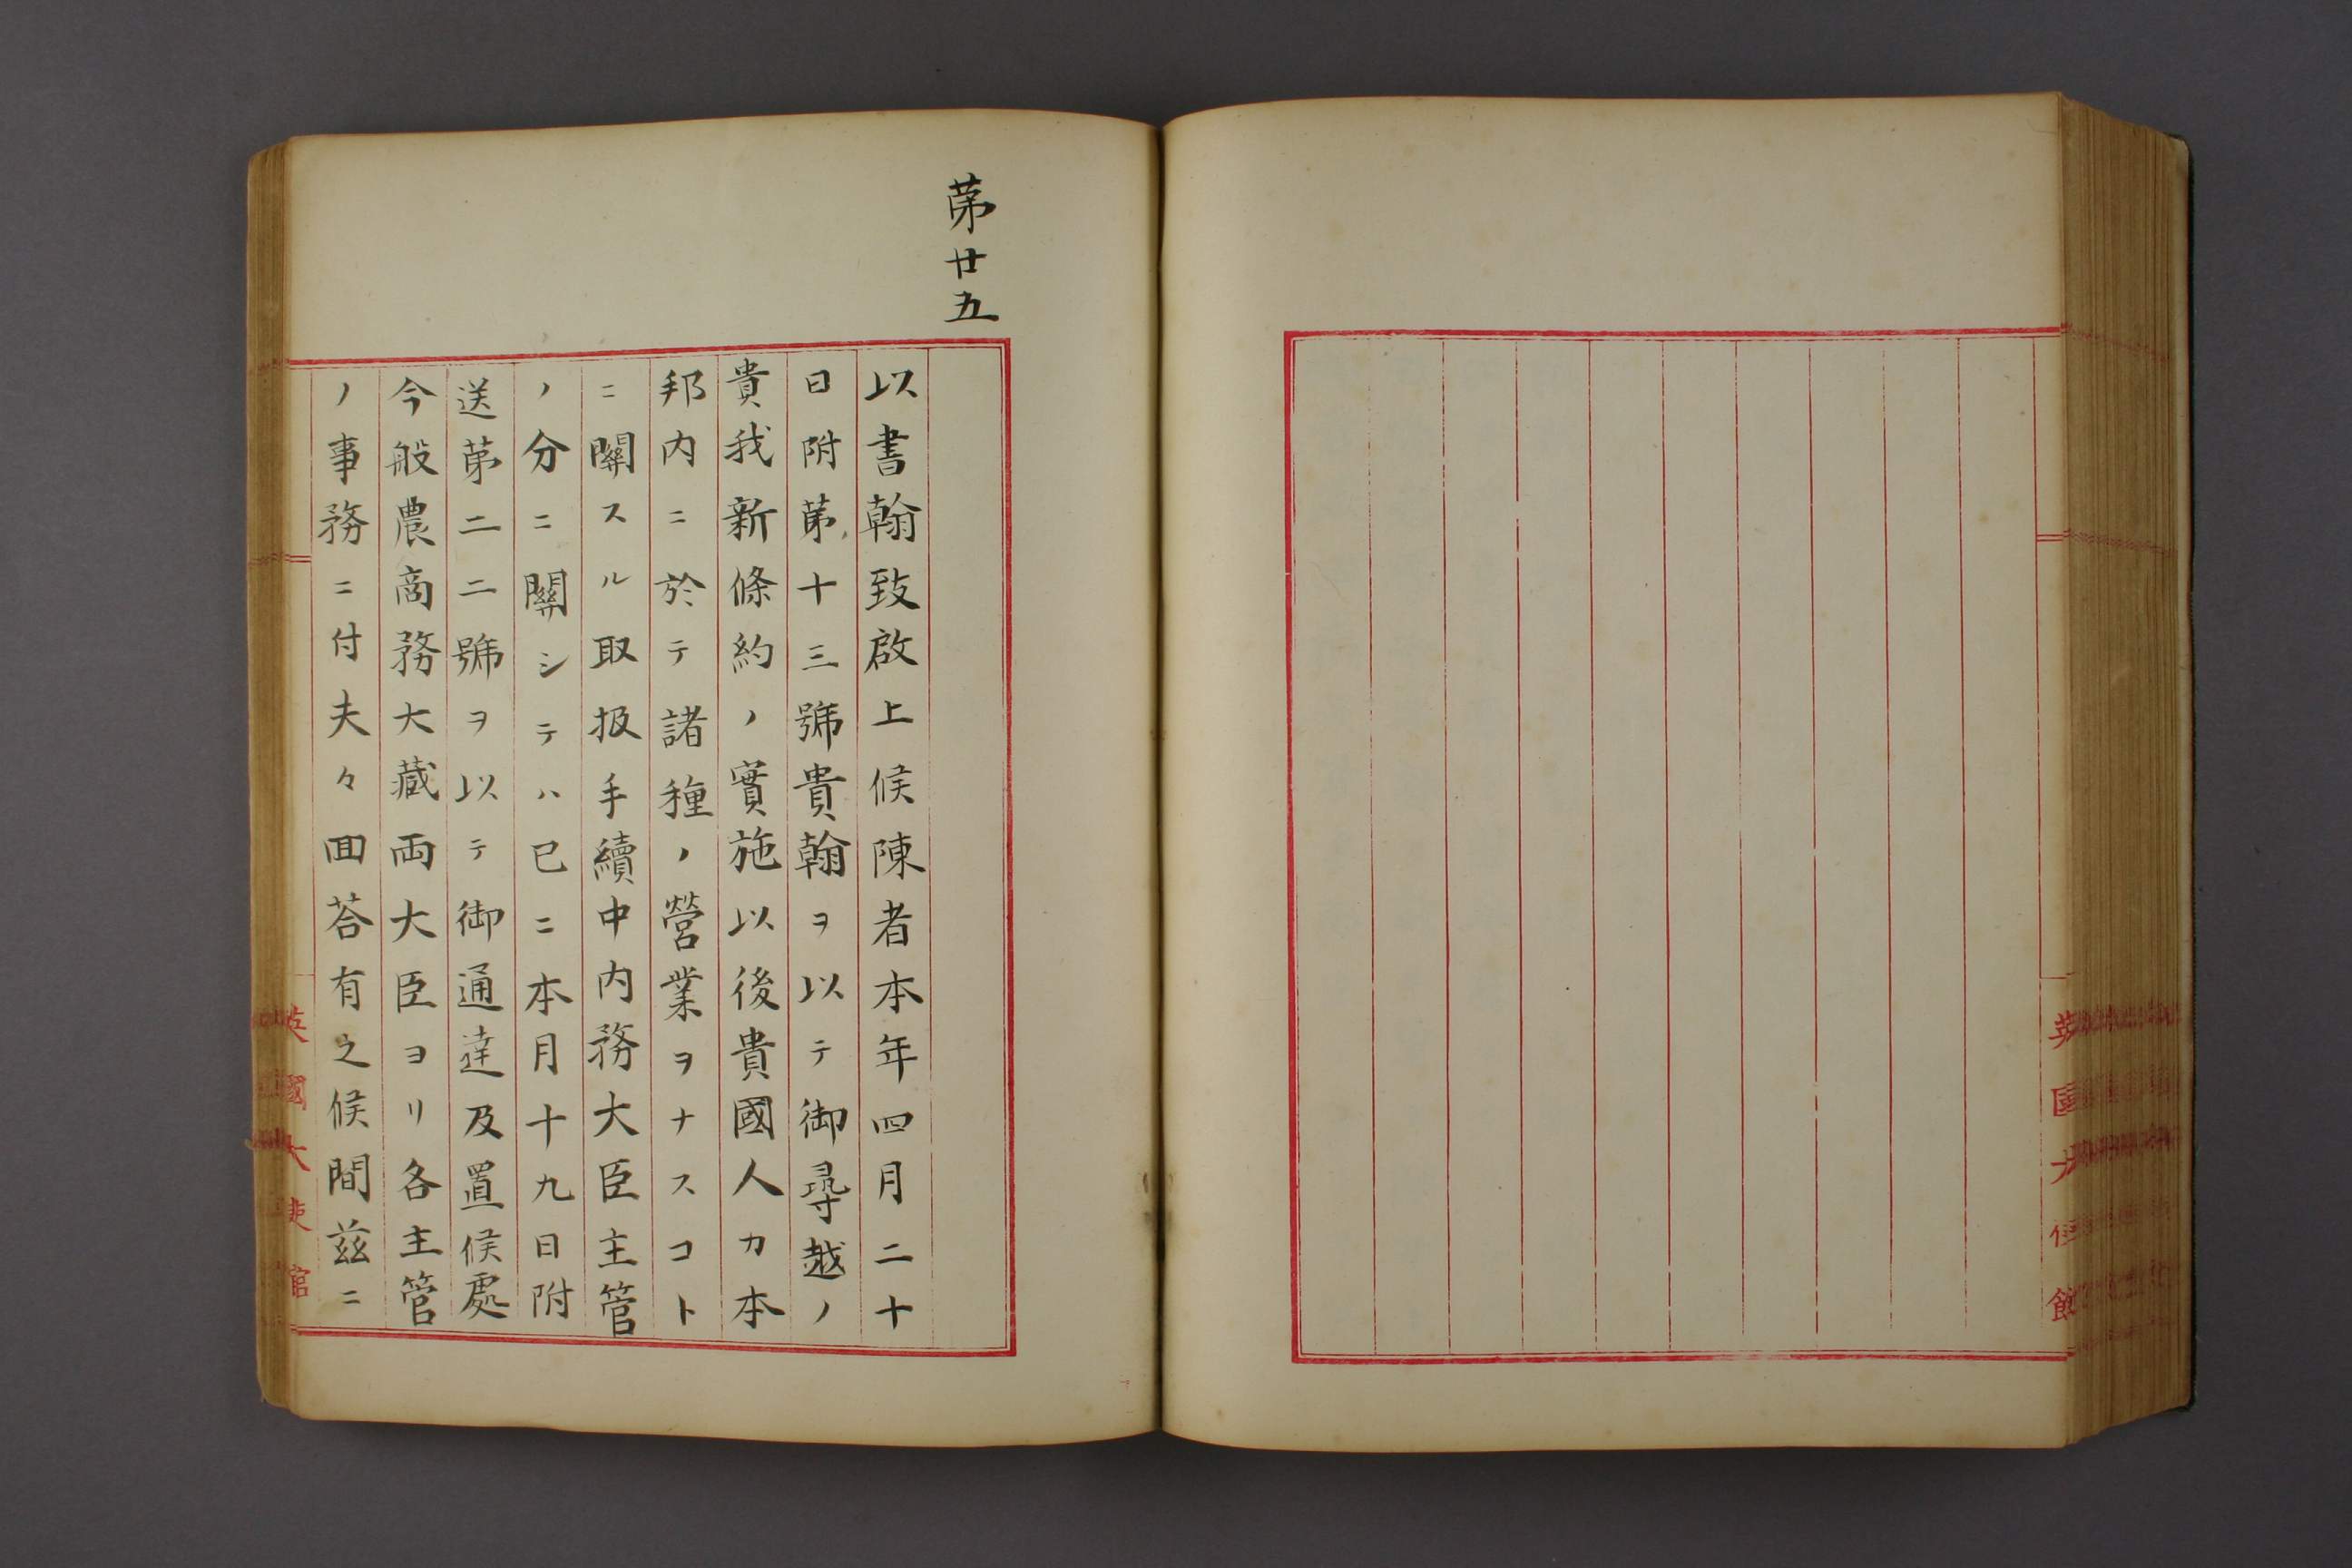 第廿五
以書翰致啟上候陳者本年四月二十
日附第十三號貴翰ヲ以テ御尋越ノ
貴我新條約ノ實施以後貴國人カ本
邦内ニ於テ諸種ノ營業ヲナスコト
ニ關スル取扱手續中内務大臣主管
ノ分ニ關シテハ已ニ本月十九日附
送第二二號ヲ以テ御通達及置候處
今般農商務大藏両大臣ヨリ各主管
ノ事務ニ付夫々回荅有之候間茲ニ
英國大使館
英國大使館